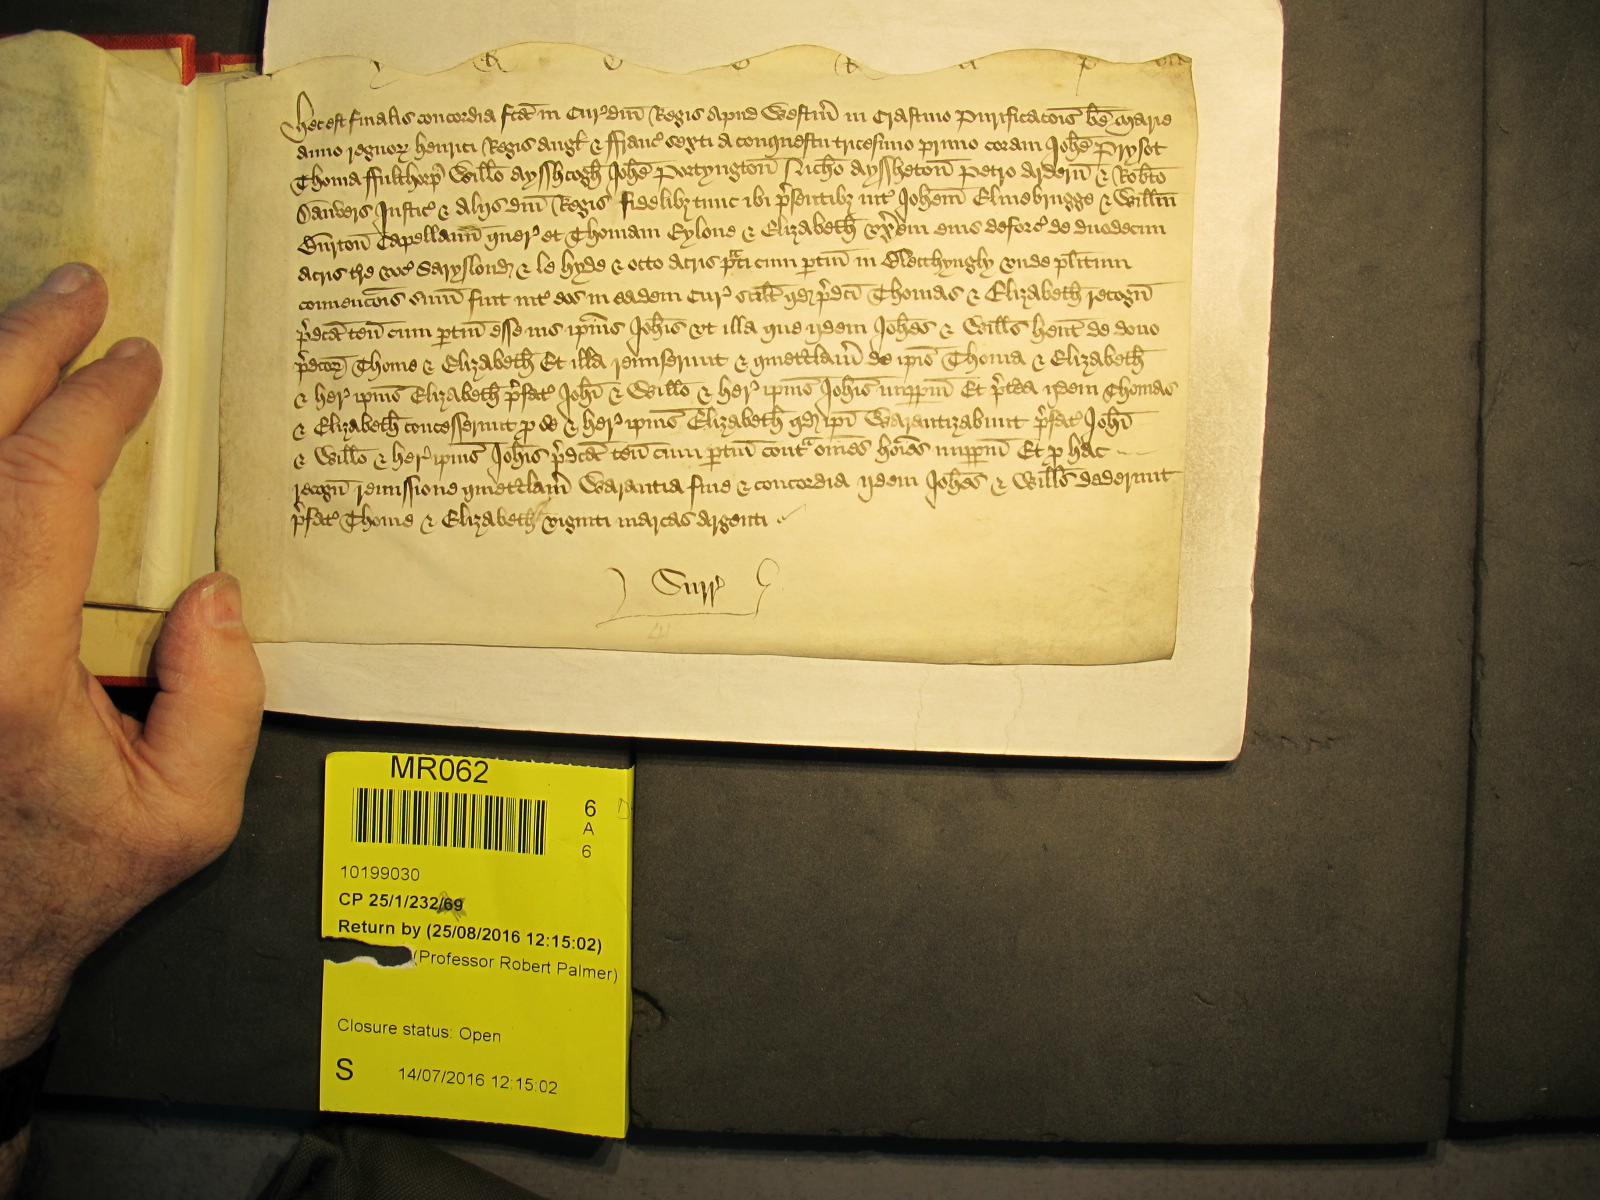 Hec est finalis concordia fc̄a in Cur' dn̄i Regis apud Westm̄ in Crastino Purificacōis bē Marie
anno regnor̨ Henrici Regis Angł & Ffranc' sexti a conquestu tricesimo primo coram Joħe Prysot
Thoma Ffulthorp' Willo Ayssħcogħ Joħe Portyngton̄ Ric̄ho Ayssħeton̄ Petro Ardern̄ & Rob̄to
Danvers Justic' & Alijs dn̄i Regis fidelibȝ tunc ibi p'sentibȝ int' Joħem Elmebrugge & Willm̄
Burton̄ Capellanū quer' et Thomam Eylove & Elizabetħ vx̄em eius deforc' de duodecim
acris t're voc' Saryslond & le Hyde & octo acris p̄ti cum p̱tin̄ in Blecchyngly vnde plītum
convencōis sum̄ fuit int' eos in eadem Cur' scilt̄ qd p'dc̄i Thomas & Elizabetħ recogn̄
p'dc̄a ten̄ cum p̱tin̄ esse ius ip̄ius Joħis vt illa que ijdem Joħes & Wills̄ hent̄ de dono
p'dcor̨ Thome & Elizabetħ Et illa remiserunt & quietclam̄ de ip̄is Thoma & Elizabetħ
& her' ipius Elizabetħ p'fat' Joħi & Willo & her' ipius Joħis imp̱p̱m̄ Et p't̄ea ijdem Thomas
& Elizabetħ concesserunt p̱ se & her' ipius Elizabetħ qd ip̄i Warantizabunt p'fat' Joħi
& Willo & her' ipius Joħis p'dc̄a ten̄ cum p̱tin̄ cont̄ om̄es ho̅i̅es imp̱p̱m̄ Et p̱ hac
recogn̄ remissione quietclam̄ Warantia fine & concordia ijdem Joħes & Wills̄ dederunt
p'fat' Thome & Elizabetħ viginti marcas argenti
Surr'
MR062
6
A
6
10199030
CP 25/1/232/69
Return by (25/08/2016 12:15:02)
(Professor Robert Palmer)
Closure status: Open
S 14/07/2016 12:15:02